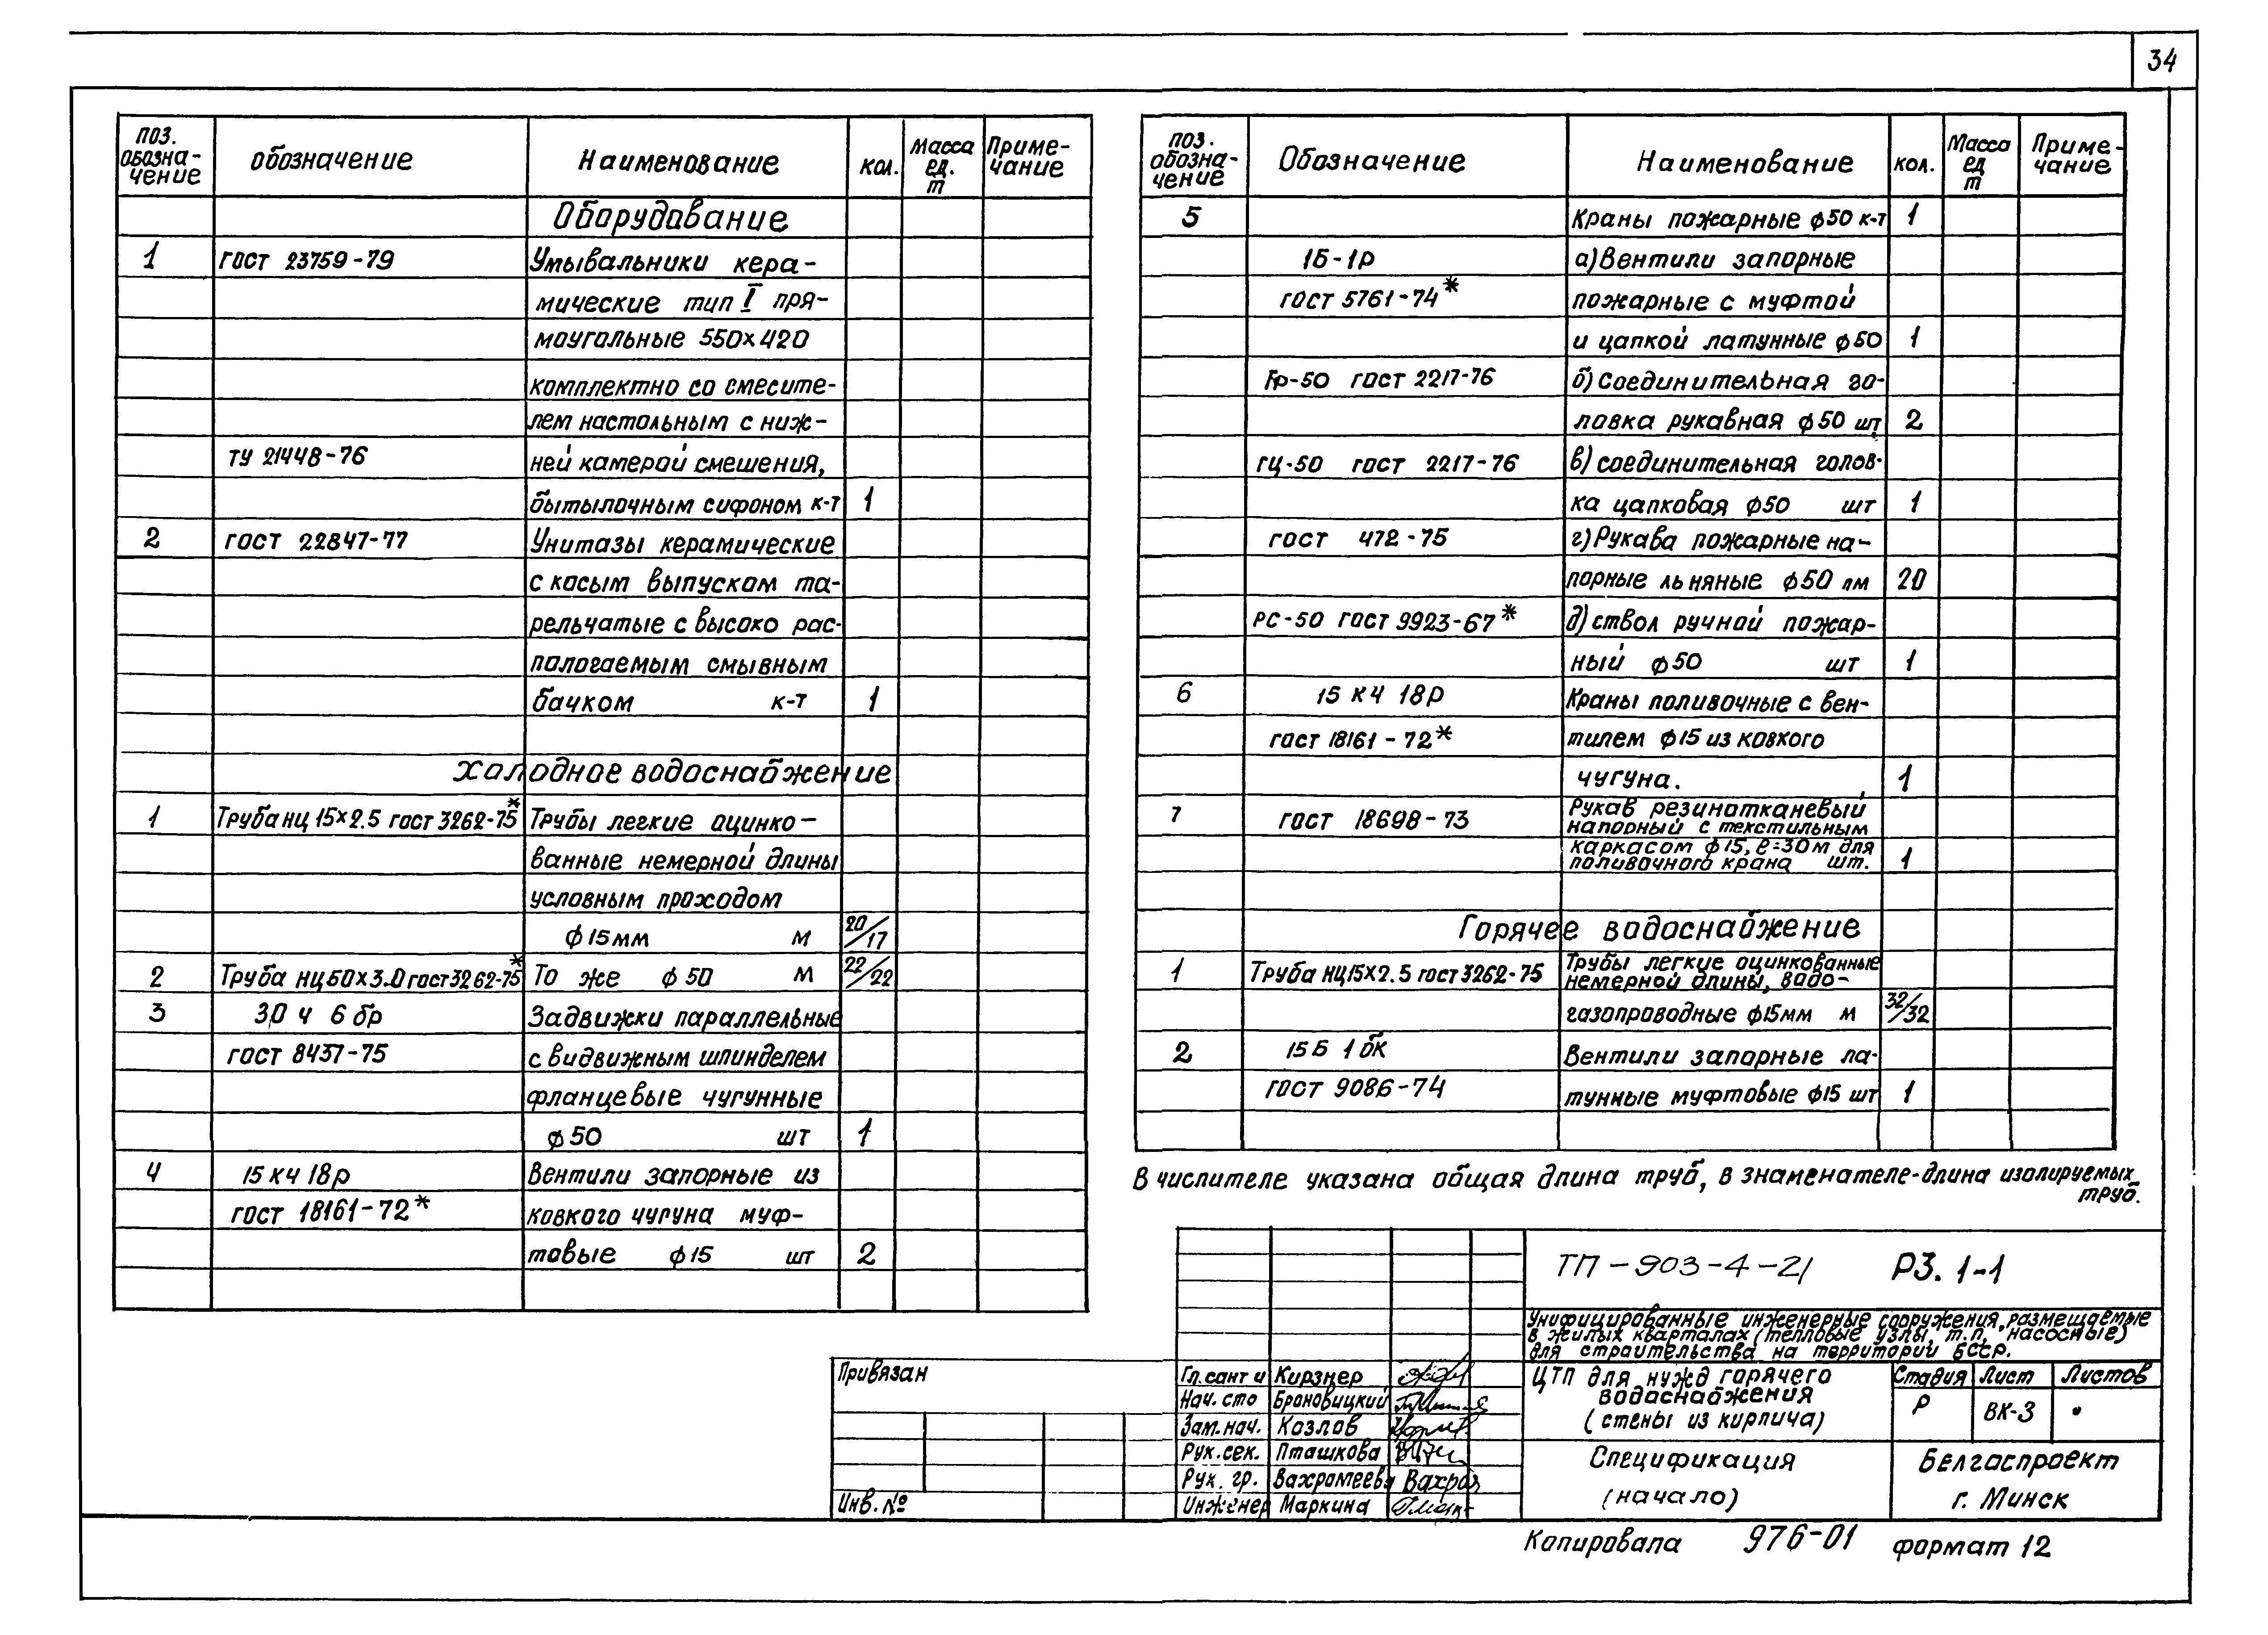 34
поз. обозна-чение обозначение Наименование кол. Масса ед. т Приме-чание
Оборудование
1 ГОСТ 23759-79 Умывальники кера-
мические тип I пря-
моугольные 550×420
комплектно со смесите-
лем настольным с ниж-
ТУ 21448-76 ней камерой смешения,
бытылочным сифоном к-т 1
2 ГОСТ 22847-77 Унитазы керамические
с косым выпуском та-
рельчатые с высоко рас-
пологаемым смывным
бачком к-т 1
Холодное водоснабжение
1 Труба нц 15×2.5 гост 3262-75* Трубы легкие оцинко-
ванные немерной длины
условным проходом
ф15мм м 20/17
2 Труба нц50×3.0 гост 3262-75* То же ф50 м 22/22
3 30 ч 6 бр Задвижки параллельные
ГОСТ 8437-75 с видвижным шпинделем
фланцевые чугунные
ф50 шт 1
4 15 кч 18р Вентили запорные из
ГОСТ 18161-72* ковкого чугуна муф-
товые ф15 шт 2
поз. обозна-чение Обозначение Наименование кол. Масса ед т Приме-чание
5 Краны пожарные ф50 к-т 1
1Б-1р а) Вентили запорные
гост 5761-74* пожарные с муфтой
и цапкой латунные ф50 1
Гр-50 гост 2217-76 б) Соединительная го-
ловка рукавная ф50 шт 2
гц-50 гост 2217-76 в) соединительная голов-
ка цапковая ф50 шт 1
гост 472-75 г) Рукава пожарные на-
порные льняные ф50 пм 20
РС-50 гост 9923-67* д) ствол ручной пожар-
ный ф50 шт 1
6 15 кч 18р Краны поливочные с вен-
гост 18161-72* тилем ф15 из ковкого
чугуна. 1
7 гост 18698-73 Рукав резинотканевый
напорный с текстильным
каркасом ф15, ℓ=30м для
поливочного крана шт. 1
Горячее водоснабжение
1 Труба нц15×2.5 гост 3262-75 Трубы легкие оцинкованные
немерной длины, водо-
газопроводные ф15мм м 32/32
2 15 Б 1 бк Вентили запорные ла-
ГОСТ 9086-74 тунные муфтовые ф15 шт 1
В числителе указана общая длина труб, в знаменателе-длина изолируемых
труб.
ТП-903-4-21 РЗ. 1-1
Унифицированные инженерные сооружения, размещаемые
в жилых кварталах (тепловые узлы, т.п, насосные)
для строительства на территории БССР.
Привязан
Инв. №
Гл. сант и Кирзнер
Нач. сто Броновицкий
Зам. нач. Козлов
Рук. сек. Пташкова
Рук. гр. Вахрамеева
Инженер Маркина
ЦТП для нужд горячего
водоснабжения
(стены из кирпича)
Стадия Лист Листов
Р ВК-3
Спецификация
(начало)
Белгоспроект
г. Минск
Копировала 976-01 формат 12